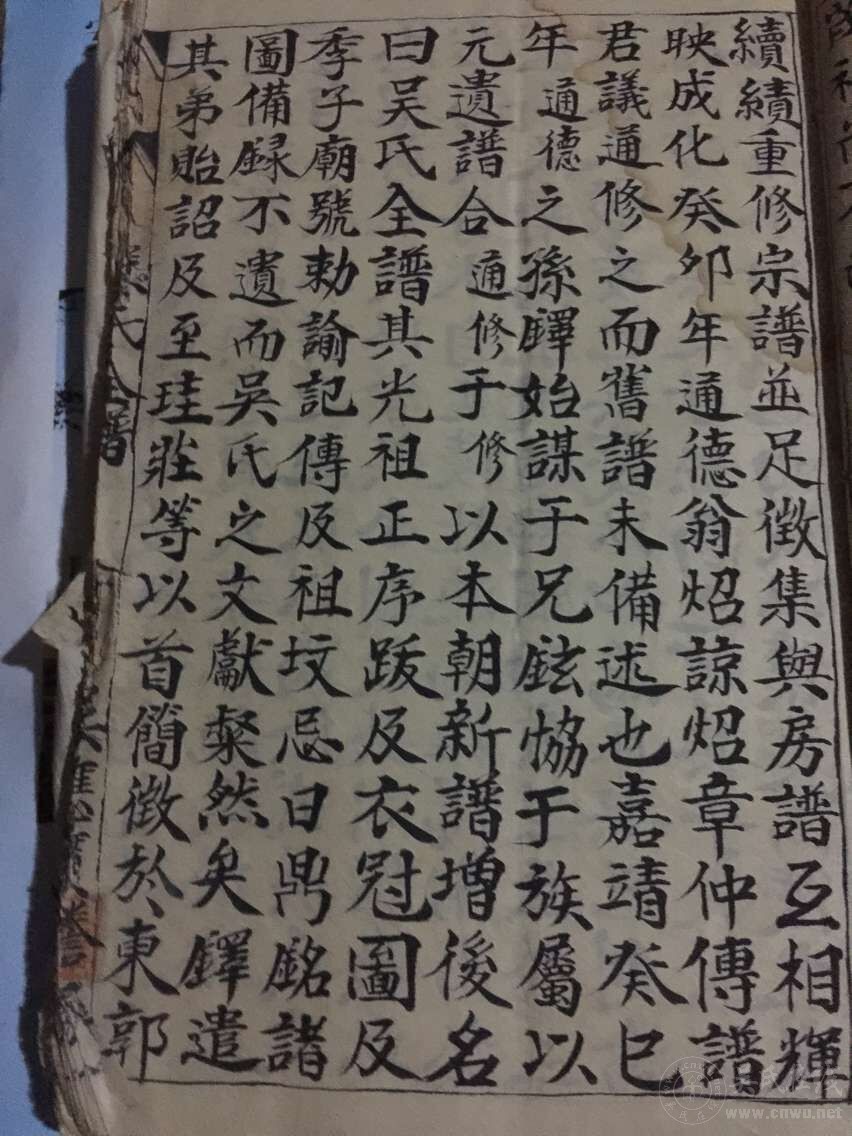 續績重修宗譜並足徵集與房譜互相輝
映成化癸卯年通德翁炤諒炤章仲傳譜
君議通修之而舊譜未備述也嘉靖癸巳
年通德之孫鐸始謀于兄鉉恊于族屬以
元遺譜合通修于修以本朝新譜增後名
曰吴氏全譜其光祖正序跋及衣冠圖及
季子廟號勅諭記傳及祖坟忌日鼎銘諸
圖備録不遺而吴氏之文獻粲然矣鐸遣
其弟貽詔及至珪莊等以首簡徵於東郭
氏全譜
www.cnwu.net